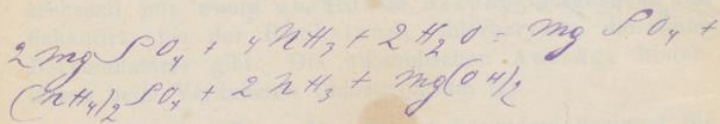 2MgSO₄ + 4NH₃ + 2H₂O = MgSO₄ +
(NH₄)₂SO₄ + 2NH₃ + Mg(OH)₂